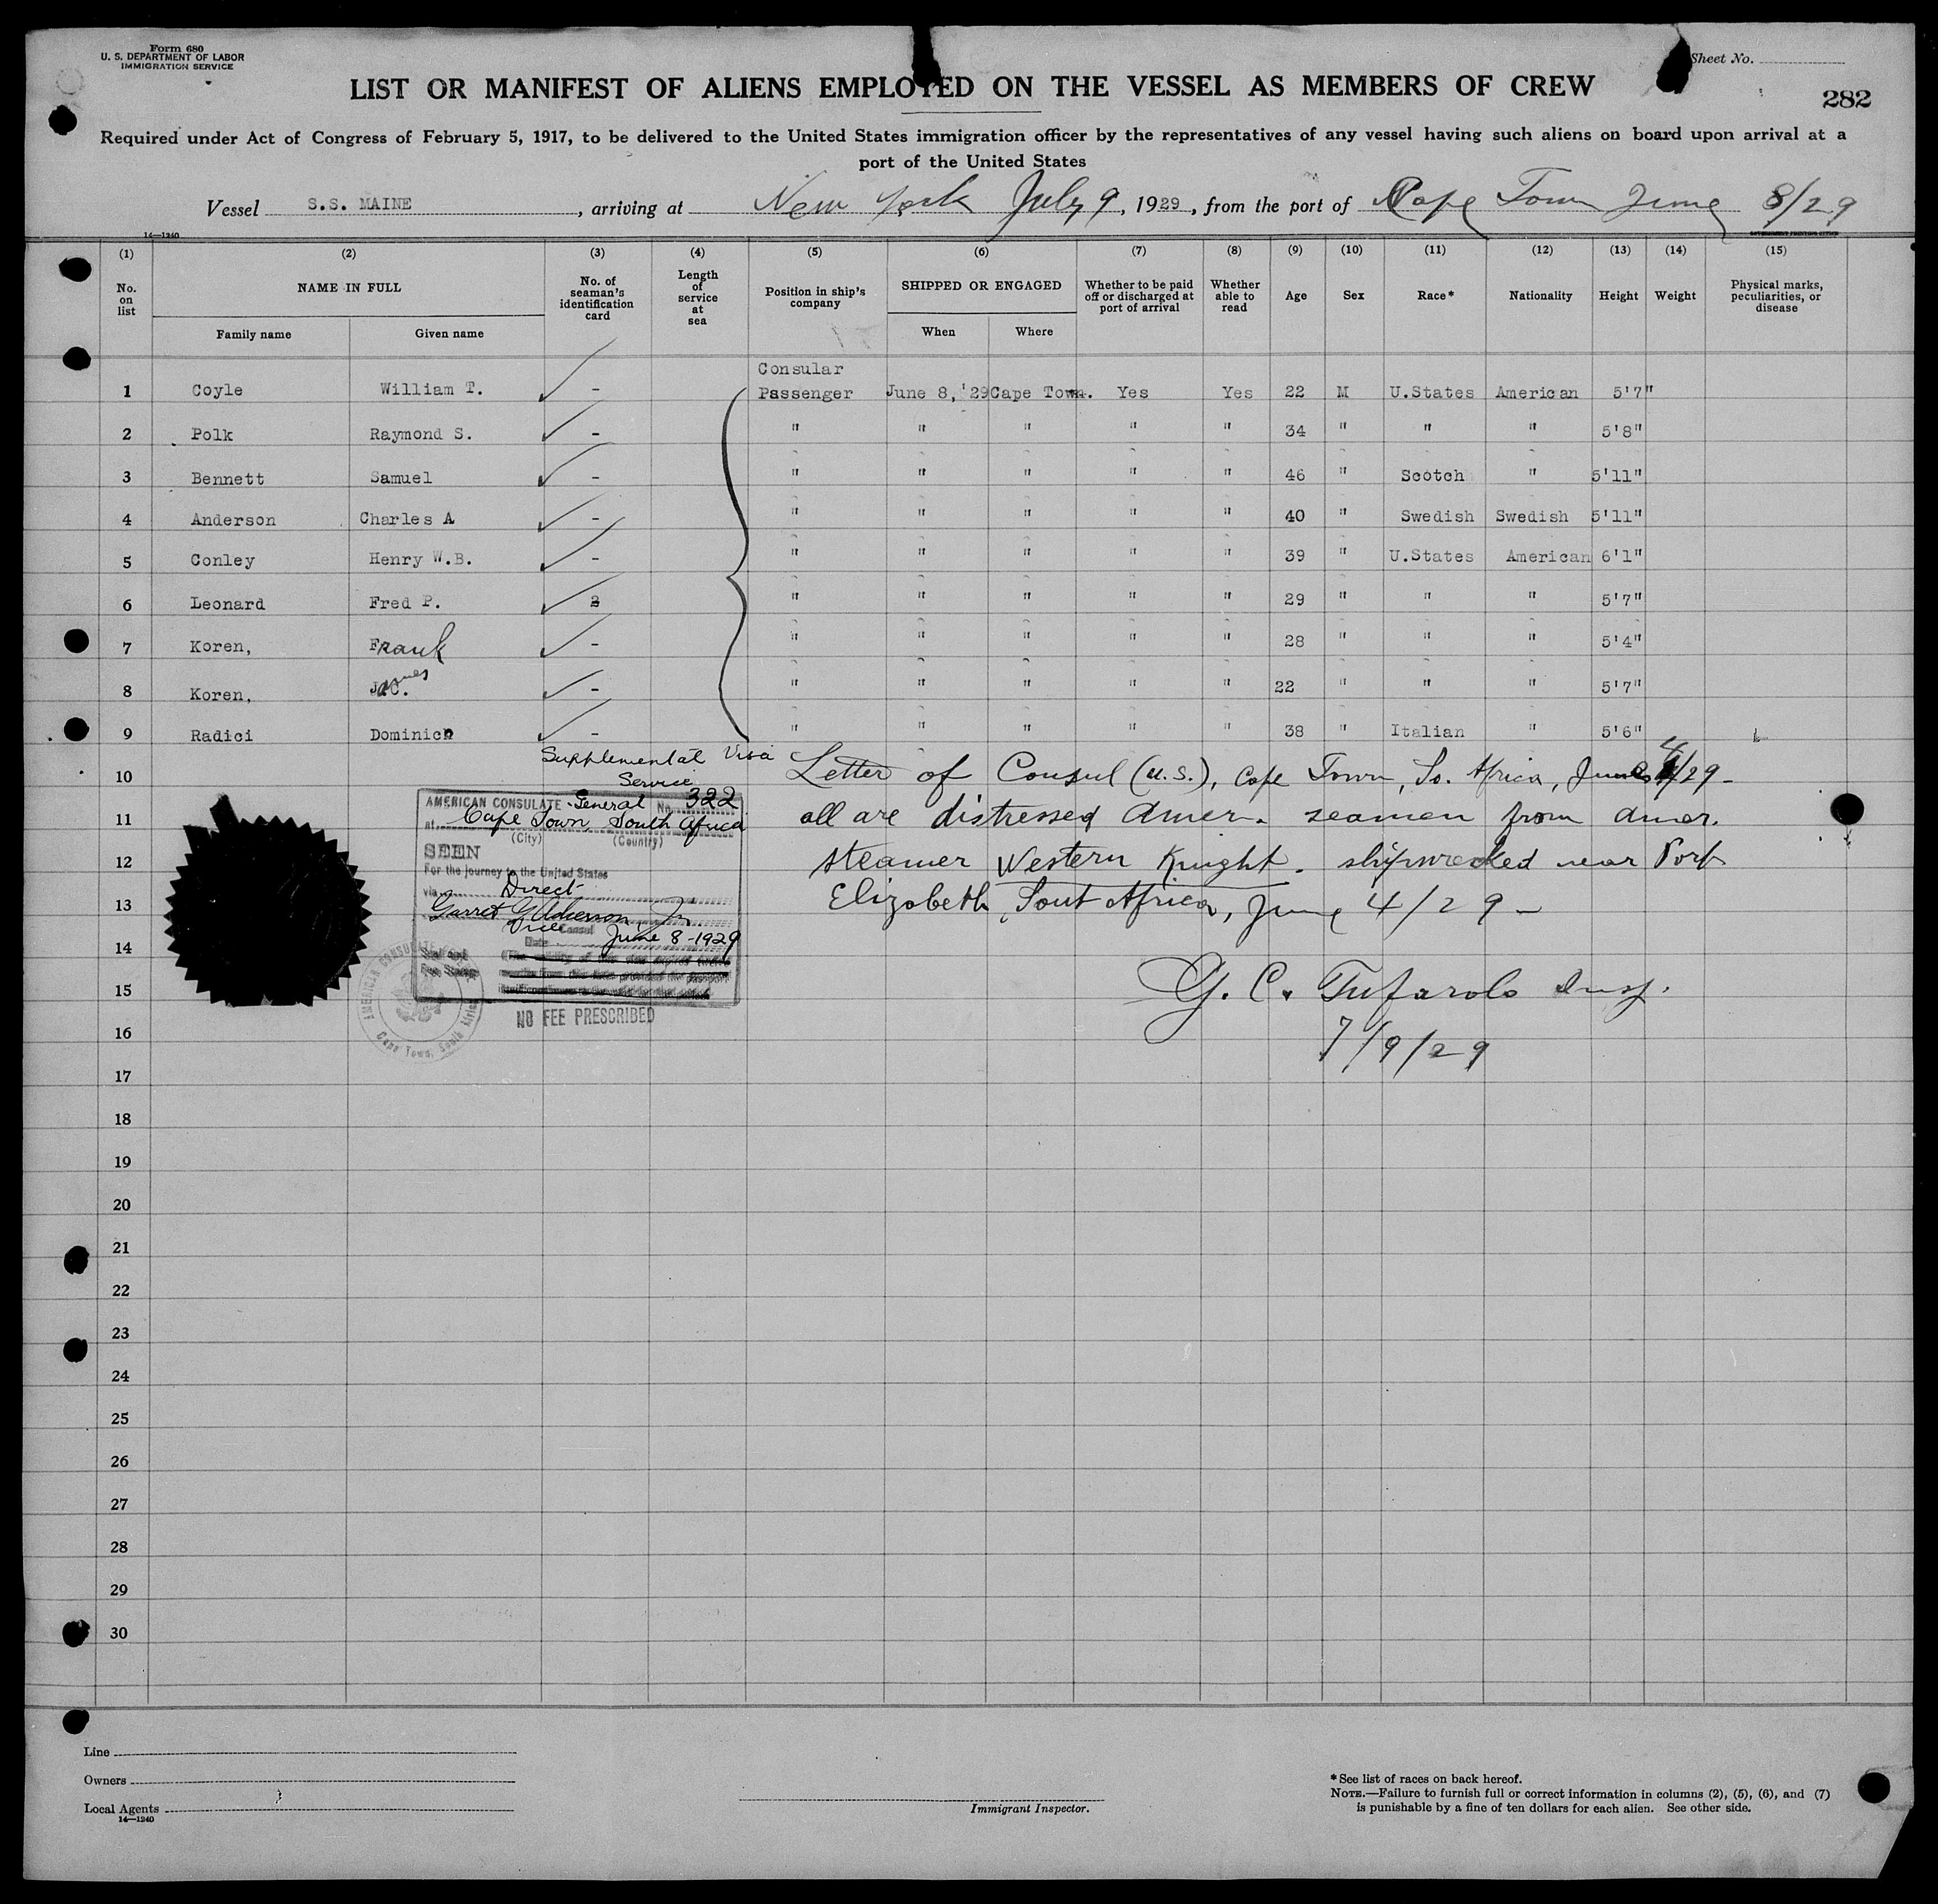 Form 680
U. S. DEPARTMENT OF LABOR
IMMIGRATION SERVICE
Sheet No.
LIST OR MANIFEST OF ALIENS EMPLOYED ON THE VESSEL AS MEMBERS OF CREW
282
Required under Act of Congress of February 5, 1917, to be delivered to the United States immigration officer by the representatives of any vessel having such aliens on board upon arrival at a
port of the United States
Vessel S.S. MAINE, arriving at New York July 9, 1929, from the port of Cape Town June 8/29
14—1240
(1) (2) (3) (4) (5) (6) (7) (8) (9) (10) (11) (12) (13) (14) (15)
No. on list NAME IN FULL No. of seaman's identification card Length of service at sea Position in ship's company SHIPPED OR ENGAGED Whether to be paid off or discharged at port of arrival Whether able to read Age Sex Race* Nationality Height Weight Physical marks, peculiarities, or disease
Family name Given name When Where
1 Coyle William T. - Consular Passenger June 8,'29 Cape Town. Yes Yes 22 M U.States American 5'7"
2 Polk Raymond S. - " " " " " 34 " " " 5'8"
3 Bennett Samuel - " " " " " 46 " Scotch " 5'11"
4 Anderson Charles A - " " " " " 40 " Swedish Swedish 5'11"
5 Conley Henry W.B. - " " " " " 39 " U.States American 6'1"
6 Leonard Fred P. " " " " " 29 " " " 5'7"
7 Koren, Frank - " " " " " 28 " " " 5'4"
8 Koren, James - " " " " " 22 " " " 5'7"
9 Radici Dominick - " " " " " 38 " Italian " 5'6"
Supplemental Visa
Service
10 Letter of Consul (U.S.), Cape Town, So. Africa, June 4/29 -
11 all are distressed Amer. seamen from Amer.
12 steamer Western Knight - shipwrecked near Port
13 Elizabeth, Sout Africa, June 4/29 -
AMERICAN CONSULATE - General No. 322
at Cape Town, South Africa
(City) (Country)
SEEN
For the journey to the United States
via Direct
Garret G. Ackerson, Jr.
Vice Consul
Date June 8 - 1929
NO FEE PRESCRIBED
AMERICAN CONSULATE
Cape Town, South Africa
14
15 G. C. Tufarolo Insp.
16 7/9/29
17
18
19
20
21
22
23
24
25
26
27
28
29
30
Line
Owners
Local Agents
14—1240
Immigrant Inspector.
*See list of races on back hereof.
NOTE.—Failure to furnish full or correct information in columns (2), (5), (6), and (7)
is punishable by a fine of ten dollars for each alien. See other side.